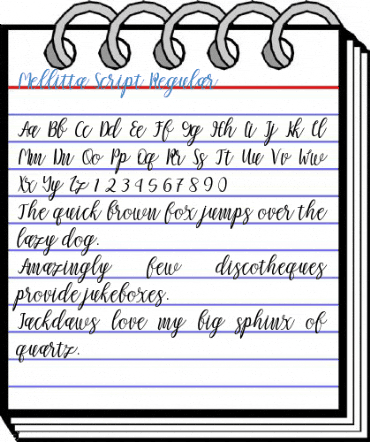 Mellitta Script Regular
Aa Bb Cc Dd Ee Ff Gg Hh Ii Jj Kk Ll
Mm Nn Oo Pp Qq Rr Ss Tt Uu Vv Ww
Xx Yy Zz 1 2 3 4 5 6 7 8 9 0
The quick brown fox jumps over the
lazy dog.
Amazingly few discotheques
provide jukeboxes.
Jackdaws love my big sphinx of
quartz.